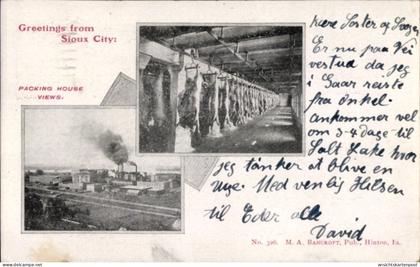 Greetings from
Sioux City:
PACKING HOUSE
VIEWS.
kære Søster og
Er nu paa Vei
vertud da jeg
i Gaar reiste
fra Onkel.
Ankommer vel
om 3-4 dage til
Salt Lake hvor
jeg tænker at blive en
Uge. Med venlig Hilsen
til Eder alle
David
No. 326. M. A. BANCROFT, Pub., Hinton, Ia.
ansichtskarten-postkarten.ch